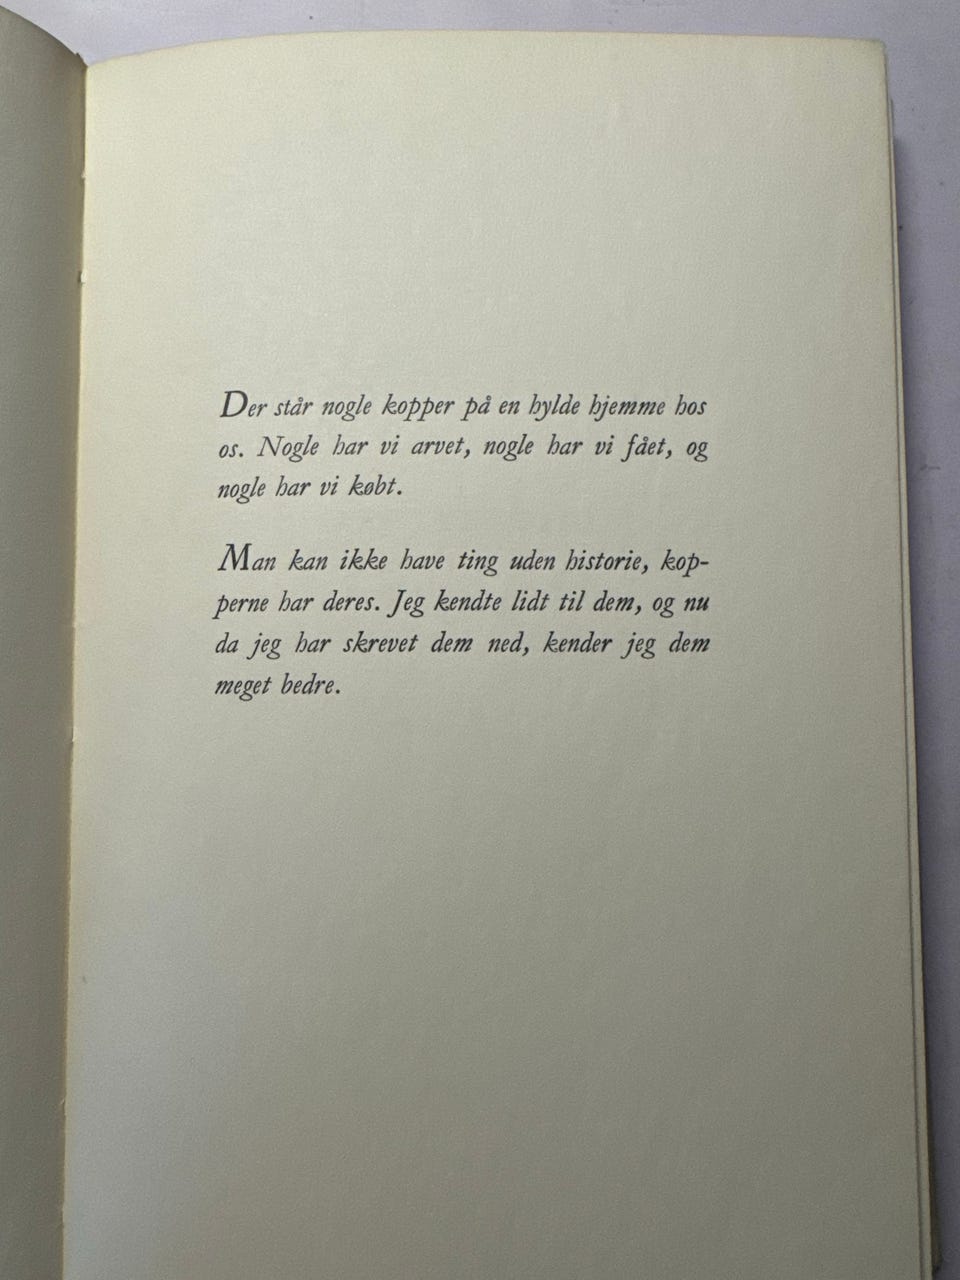 Der står nogle kopper på en hylde hjemme hos
os. Nogle har vi arvet, nogle har vi fået, og
nogle har vi købt.
Man kan ikke have ting uden historie, kop-
perne har deres. Jeg kendte lidt til dem, og nu
da jeg har skrevet dem ned, kender jeg dem
meget bedre.